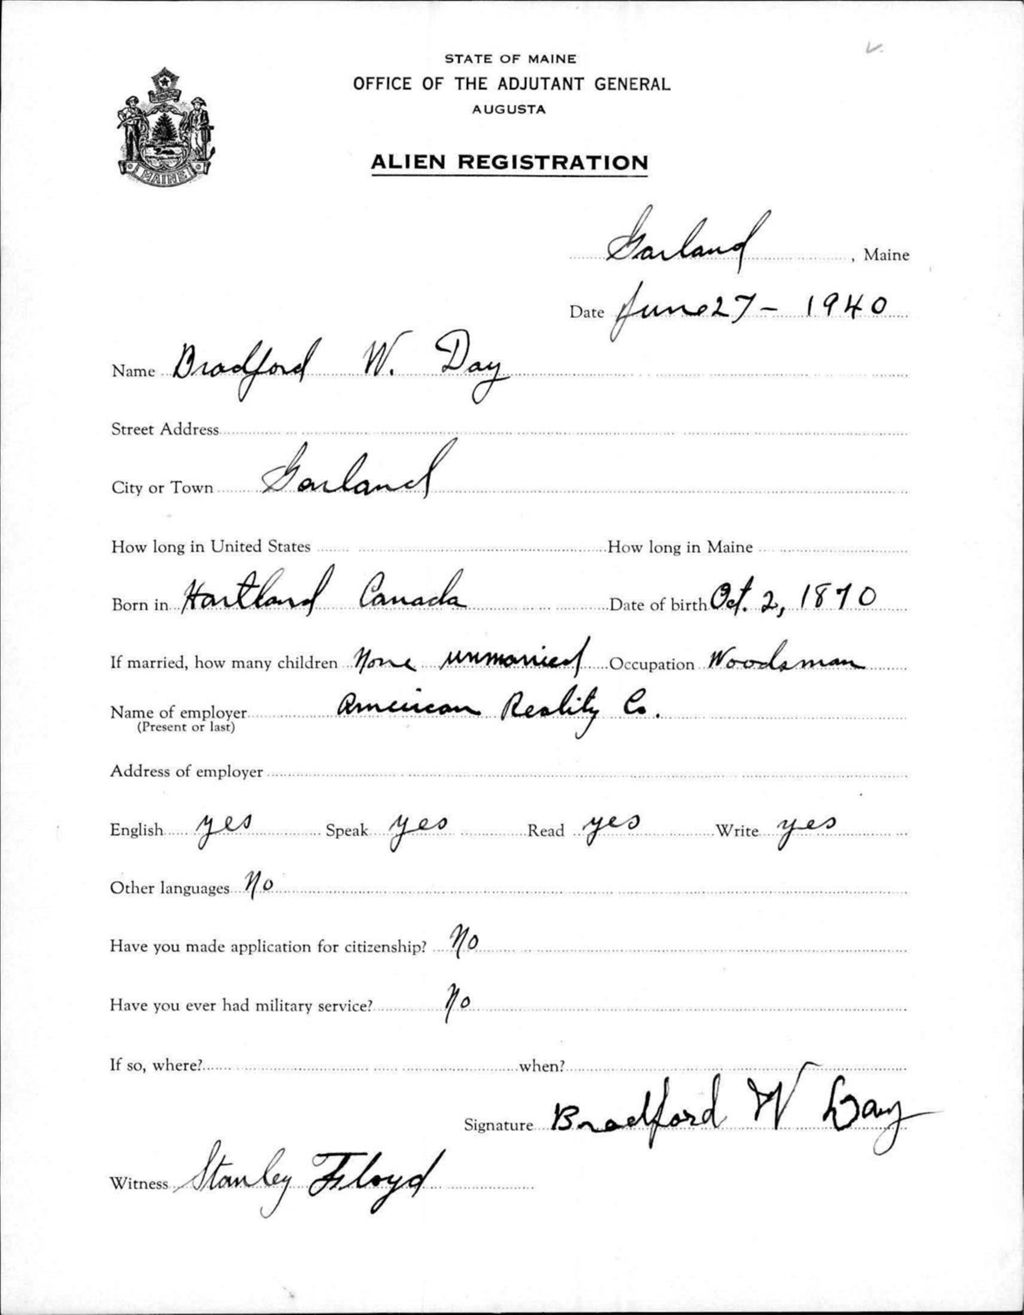 STATE OF MAINE
OFFICE OF THE ADJUTANT GENERAL
AUGUSTA
ALIEN REGISTRATION
MAINE
Garland, Maine
Date June 27 - 1940
Name Bradford W. Day
Street Address
City or Town Garland
How long in United States How long in Maine
Born in Hartland Canada Date of birth Oct. 2, 1870
If married, how many children None unmarried Occupation Woodsman
Name of employer American Reality Co.
(Present or last)
Address of employer
English yes Speak yes Read yes Write yes
Other languages No
Have you made application for citizenship? No
Have you ever had military service? No
If so, where? when?
Signature Bradford W Day
Witness Stanley Floyd